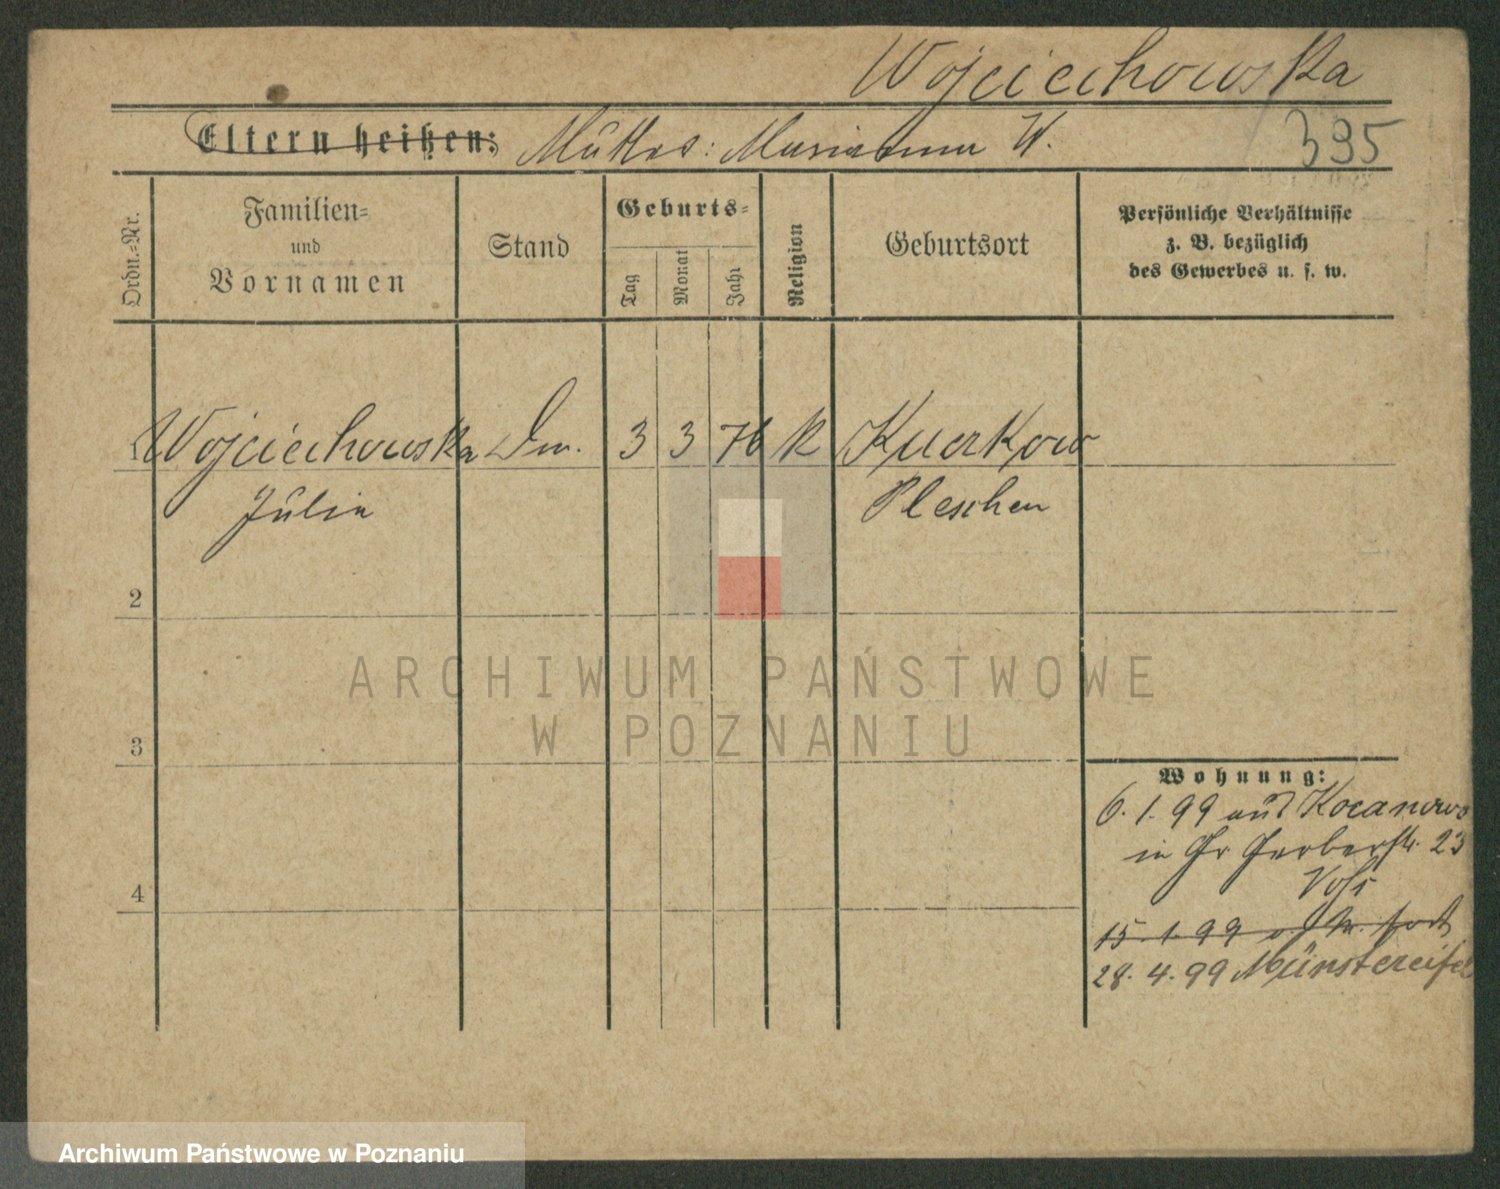 Wojciechowska
Eltern heißen: Mutter: Marianna W.
395
Ordn.=Nr.
Familien=
und
Vornamen
Stand
Geburts=
Tag
Monat
Jahr
Religion
Geburtsort
Persönliche Verhältnisse
z. B. bezüglich
des Gewerbes u. s. w.
1 Wojciechowska 3 3 76 k
Julia
Pleschen
2
3
4
Wohnung:
6. 1. 99 aus Kocanowo
in Gr Gerberstr. 23
15. 1. 99 fort
28. 4. 99 Münstereifel
ARCHIWUM PAŃSTWOWE
W POZNANIU
Archiwum Państwowe w Poznaniu